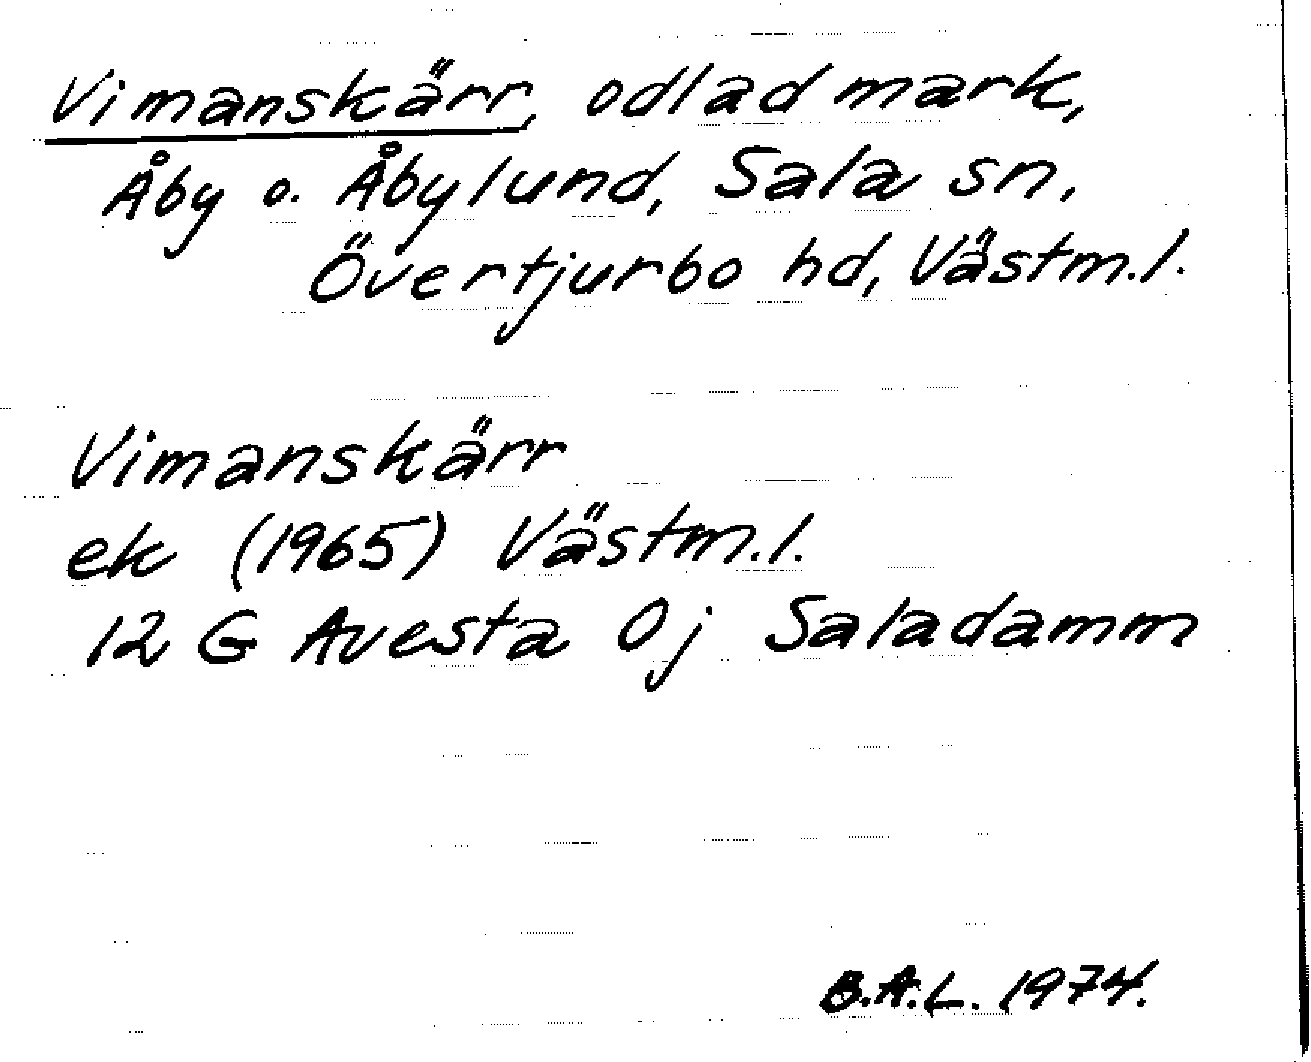 Vimanskärr, odlad mark,
Åby o. Åbylund, Sala sn,
Övertjurbo hd, Västm.l.
Vimanskärr
ek (1965) Västm.l.
12 G Avesta 0j Saladamm
B.A.L. 1974.